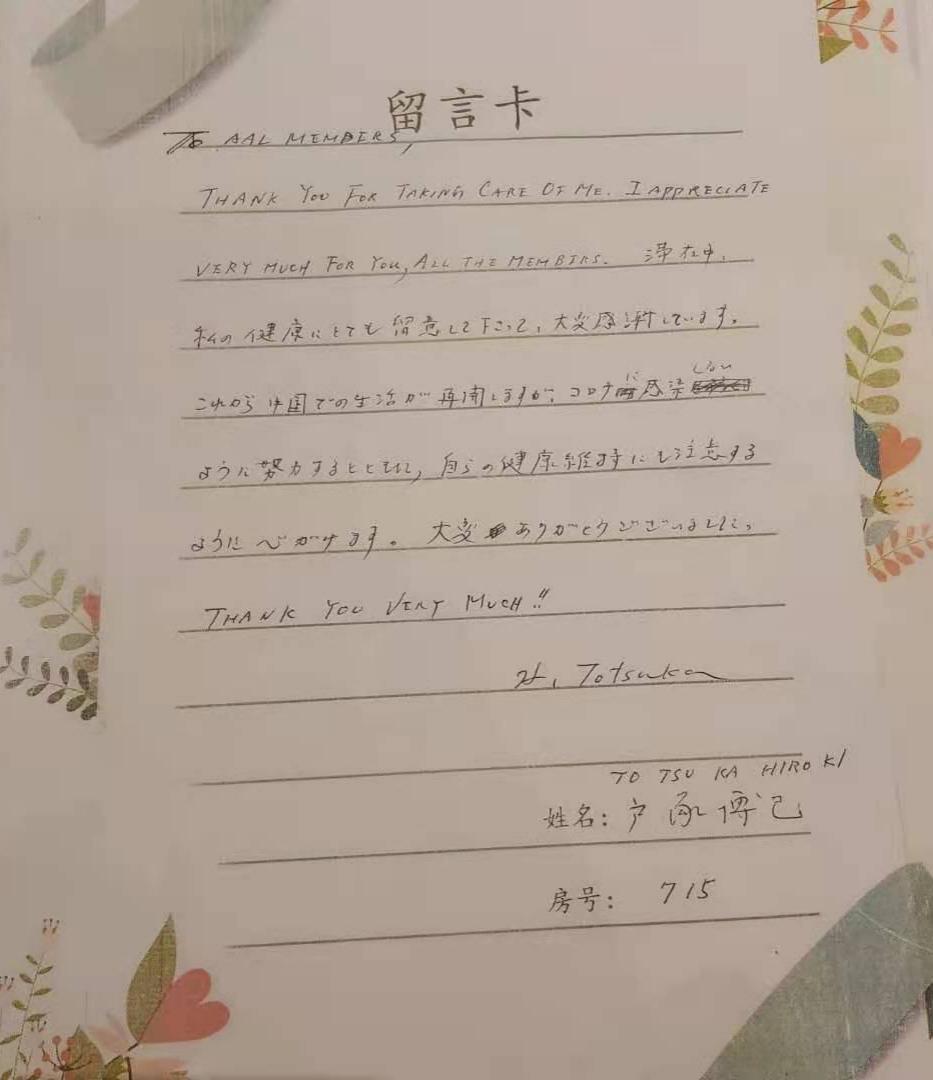 留言卡
To AAL MEMBERS,
THANK YOU FOR TAKING CARE OF ME. I APPRECIATE
VERY MUCH FOR YOU, ALL THE MEMBERS. 滞在中、
私の健康にとても留意して下さって、大変感謝しています。
これから中国での生活が再開しますが、コロナに感染しない
ように努力するとともに、自らの健康維持にも注意する
ように心がけます。大変ありがとうございました。
THANK YOU VERY MUCH!!
H. Totsuka
TO TSU KA HIRO KI
姓名: 戸塚博己
房号: 715